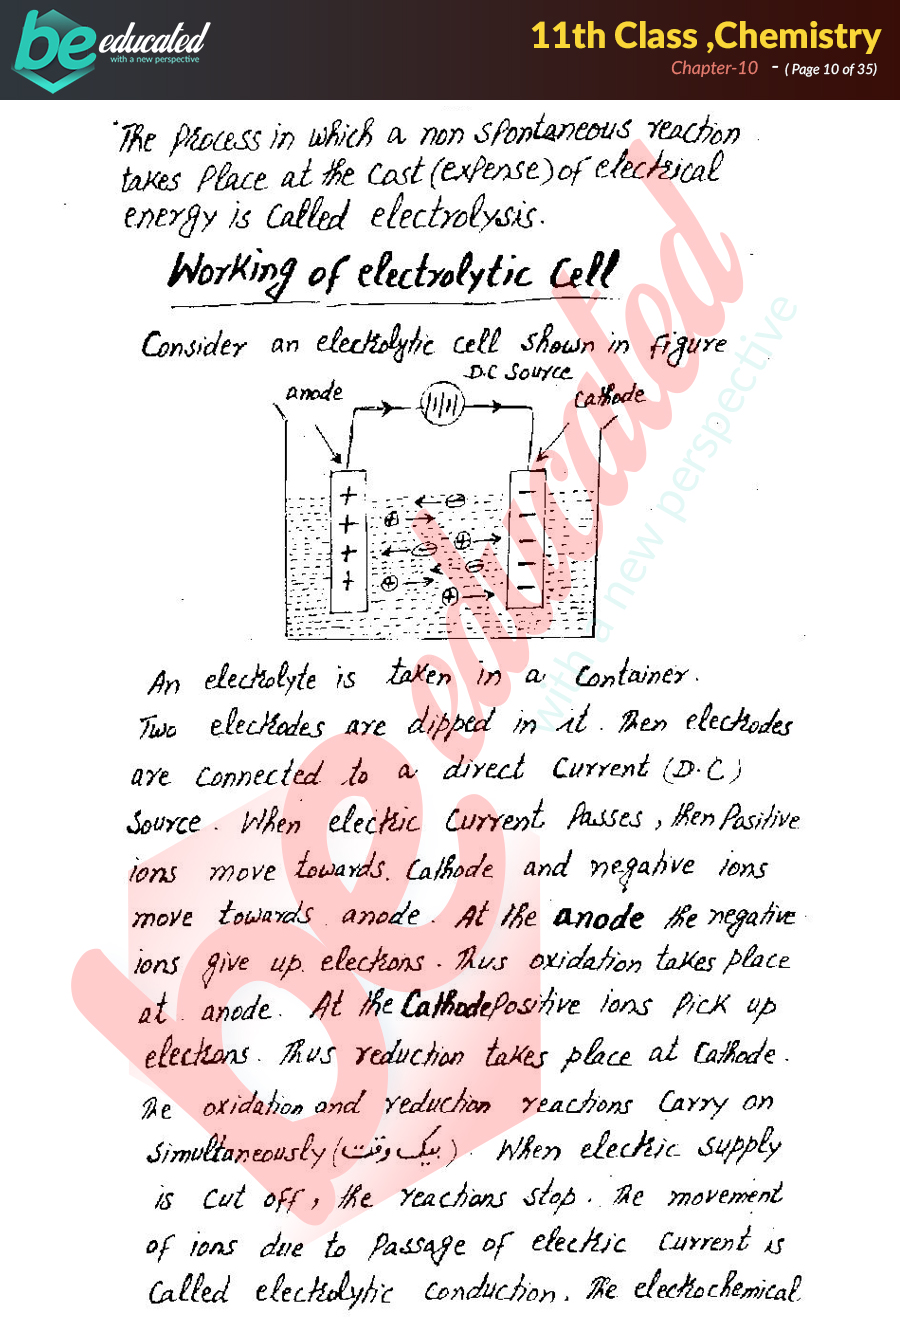 be educated
with a new perspective
11th Class ,Chemistry
Chapter-10 - ( Page 10 of 35)
The Process in which a non spontaneous reaction
takes Place at the Cost (expense) of electrical
energy is Called electrolysis.
Working of electrolytic Cell
Consider an electrolytic cell shown in figure
D.C Source
anode
Cathode
An electrolyte is taken in a Container.
Two electrodes are dipped in it. Then electrodes
are Connected to a direct Current (D.C)
Source. When electric Current Passes, then Positive
ions move towards. Cathode and negative ions
move towards anode. At the anode the negative
ions give up electrons. Thus oxidation takes place
at anode. At the Cathode Positive ions Pick up
electrons. Thus reduction takes place at Cathode.
The oxidation and reduction reactions Carry on
Simultaneously (بیک وقت). When electric supply
is Cut off, the reactions stop. The movement
of ions due to Passage of electric Current is
Called electrolytic conduction. The electrochemical
be educated
with a new perspective